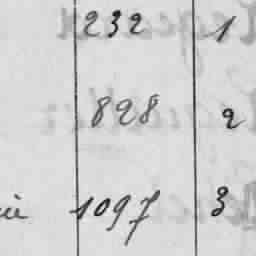 232 1
828 2
1097 3